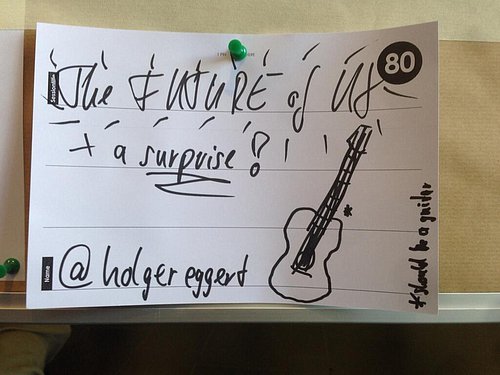 80
Session
The FUTURE of US
+ a surprise!
@holgereggert
Name
*should be a guitar